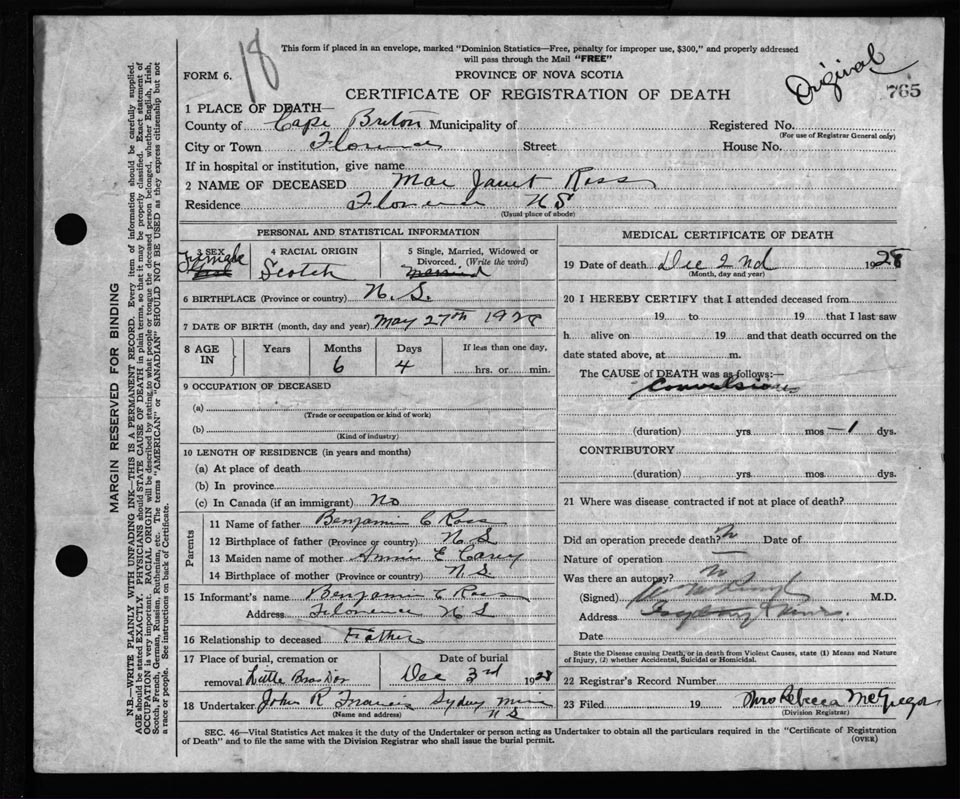 18
This form if placed in an envelope, marked "Dominion Statistics—Free, penalty for improper use, $300," and properly addressed
will pass through the Mail "FREE"
Original
765
FORM 6.
PROVINCE OF NOVA SCOTIA
CERTIFICATE OF REGISTRATION OF DEATH
1 PLACE OF DEATH—
County of Cape Breton Municipality of Registered No.
(For use of Registrar General only)
City or Town Florence Street House No.
If in hospital or institution, give name
2 NAME OF DECEASED Mae Janet Ross
Residence Florence N S
(Usual place of abode)
PERSONAL AND STATISTICAL INFORMATION
3 SEX Female
4 RACIAL ORIGIN Scotch
5 Single, Married, Widowed or Divorced. (Write the word)
6 BIRTHPLACE (Province or country) N. S.
7 DATE OF BIRTH (month, day and year) May 27th 1928
8 AGE IN Years Months 6 Days 4 If less than one day, hrs. or min.
9 OCCUPATION OF DECEASED
(a)
(Trade or occupation or kind of work)
(b)
(Kind of industry)
10 LENGTH OF RESIDENCE (in years and months)
(a) At place of death
(b) In province
(c) In Canada (if an immigrant) No
Parents
11 Name of father Benjamin C Ross
12 Birthplace of father (Province or country) N S
13 Maiden name of mother Annie E Carey
14 Birthplace of mother (Province or country) N S
15 Informant's name Benjamin C Ross
Address Florence N S
16 Relationship to deceased Father
17 Place of burial, cremation or removal Little Bras Dor
Date of burial Dec 3rd 1928
18 Undertaker John R Francis Sydney Mines
N S
(Name and address)
MEDICAL CERTIFICATE OF DEATH
19 Date of death Dec 2nd 1928
(Month, day and year)
20 I HEREBY CERTIFY that I attended deceased from
19 to 19 that I last saw
h alive on 19 and that death occurred on the
date stated above, at m.
The CAUSE of DEATH was as follows:—
Convulsions
(duration) yrs. mos —1 dys.
CONTRIBUTORY
(duration) yrs. mos. dys.
21 Where was disease contracted if not at place of death?
Did an operation precede death? Date of
Nature of operation
Was there an autopsy?
(Signed) M.D.
Address
Date
State the Disease causing Death, or in death from Violent Causes, state (1) Means and Nature
of Injury, (2) whether Accidental, Suicidal or Homicidal.
22 Registrar's Record Number
23 Filed 19 Mrs Rebecca McGregor
(Division Registrar)
SEC. 46—Vital Statistics Act makes it the duty of the Undertaker or person acting as Undertaker to obtain all the particulars required in the "Certificate of Registration
of Death" and to file the same with the Division Registrar who shall issue the burial permit.
(OVER)
MARGIN RESERVED FOR BINDING
N.B.—WRITE PLAINLY WITH UNFADING INK—THIS IS A PERMANENT RECORD. Every item of information should be carefully supplied.
AGE should be stated EXACTLY. PHYSICIANS should STATE CAUSE OF DEATH in plain terms, so that it may be properly classified. Exact statement of
OCCUPATION is very important. RACIAL ORIGIN will be described by stating to what people or tongue the deceased person belonged, whether English, Irish,
Scotch, French, German, Russian, Ruthenian, etc. The terms "AMERICAN" or "CANADIAN" SHOULD NOT BE USED as they express citizenship but not
a race or people. See instructions on back of Certificate.